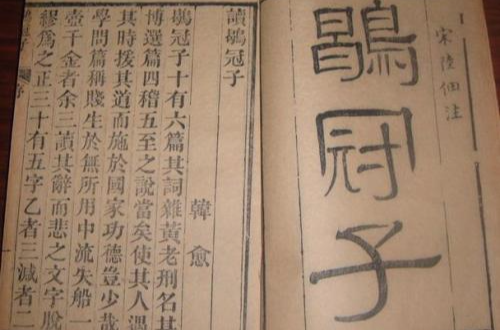 宋陸佃注
鶡冠子
讀鶡冠子
韓愈
鶡冠子十有六篇其詞雜黃老刑名其
博選篇四稽五至之說當矣使其人遇
其時援其道而施於國家功德豈少哉
學問篇稱賤生於無所用中流失船一
壺千金者余三讀其辭而悲之文字脫
繆爲之正三十有五字乙者三減者二